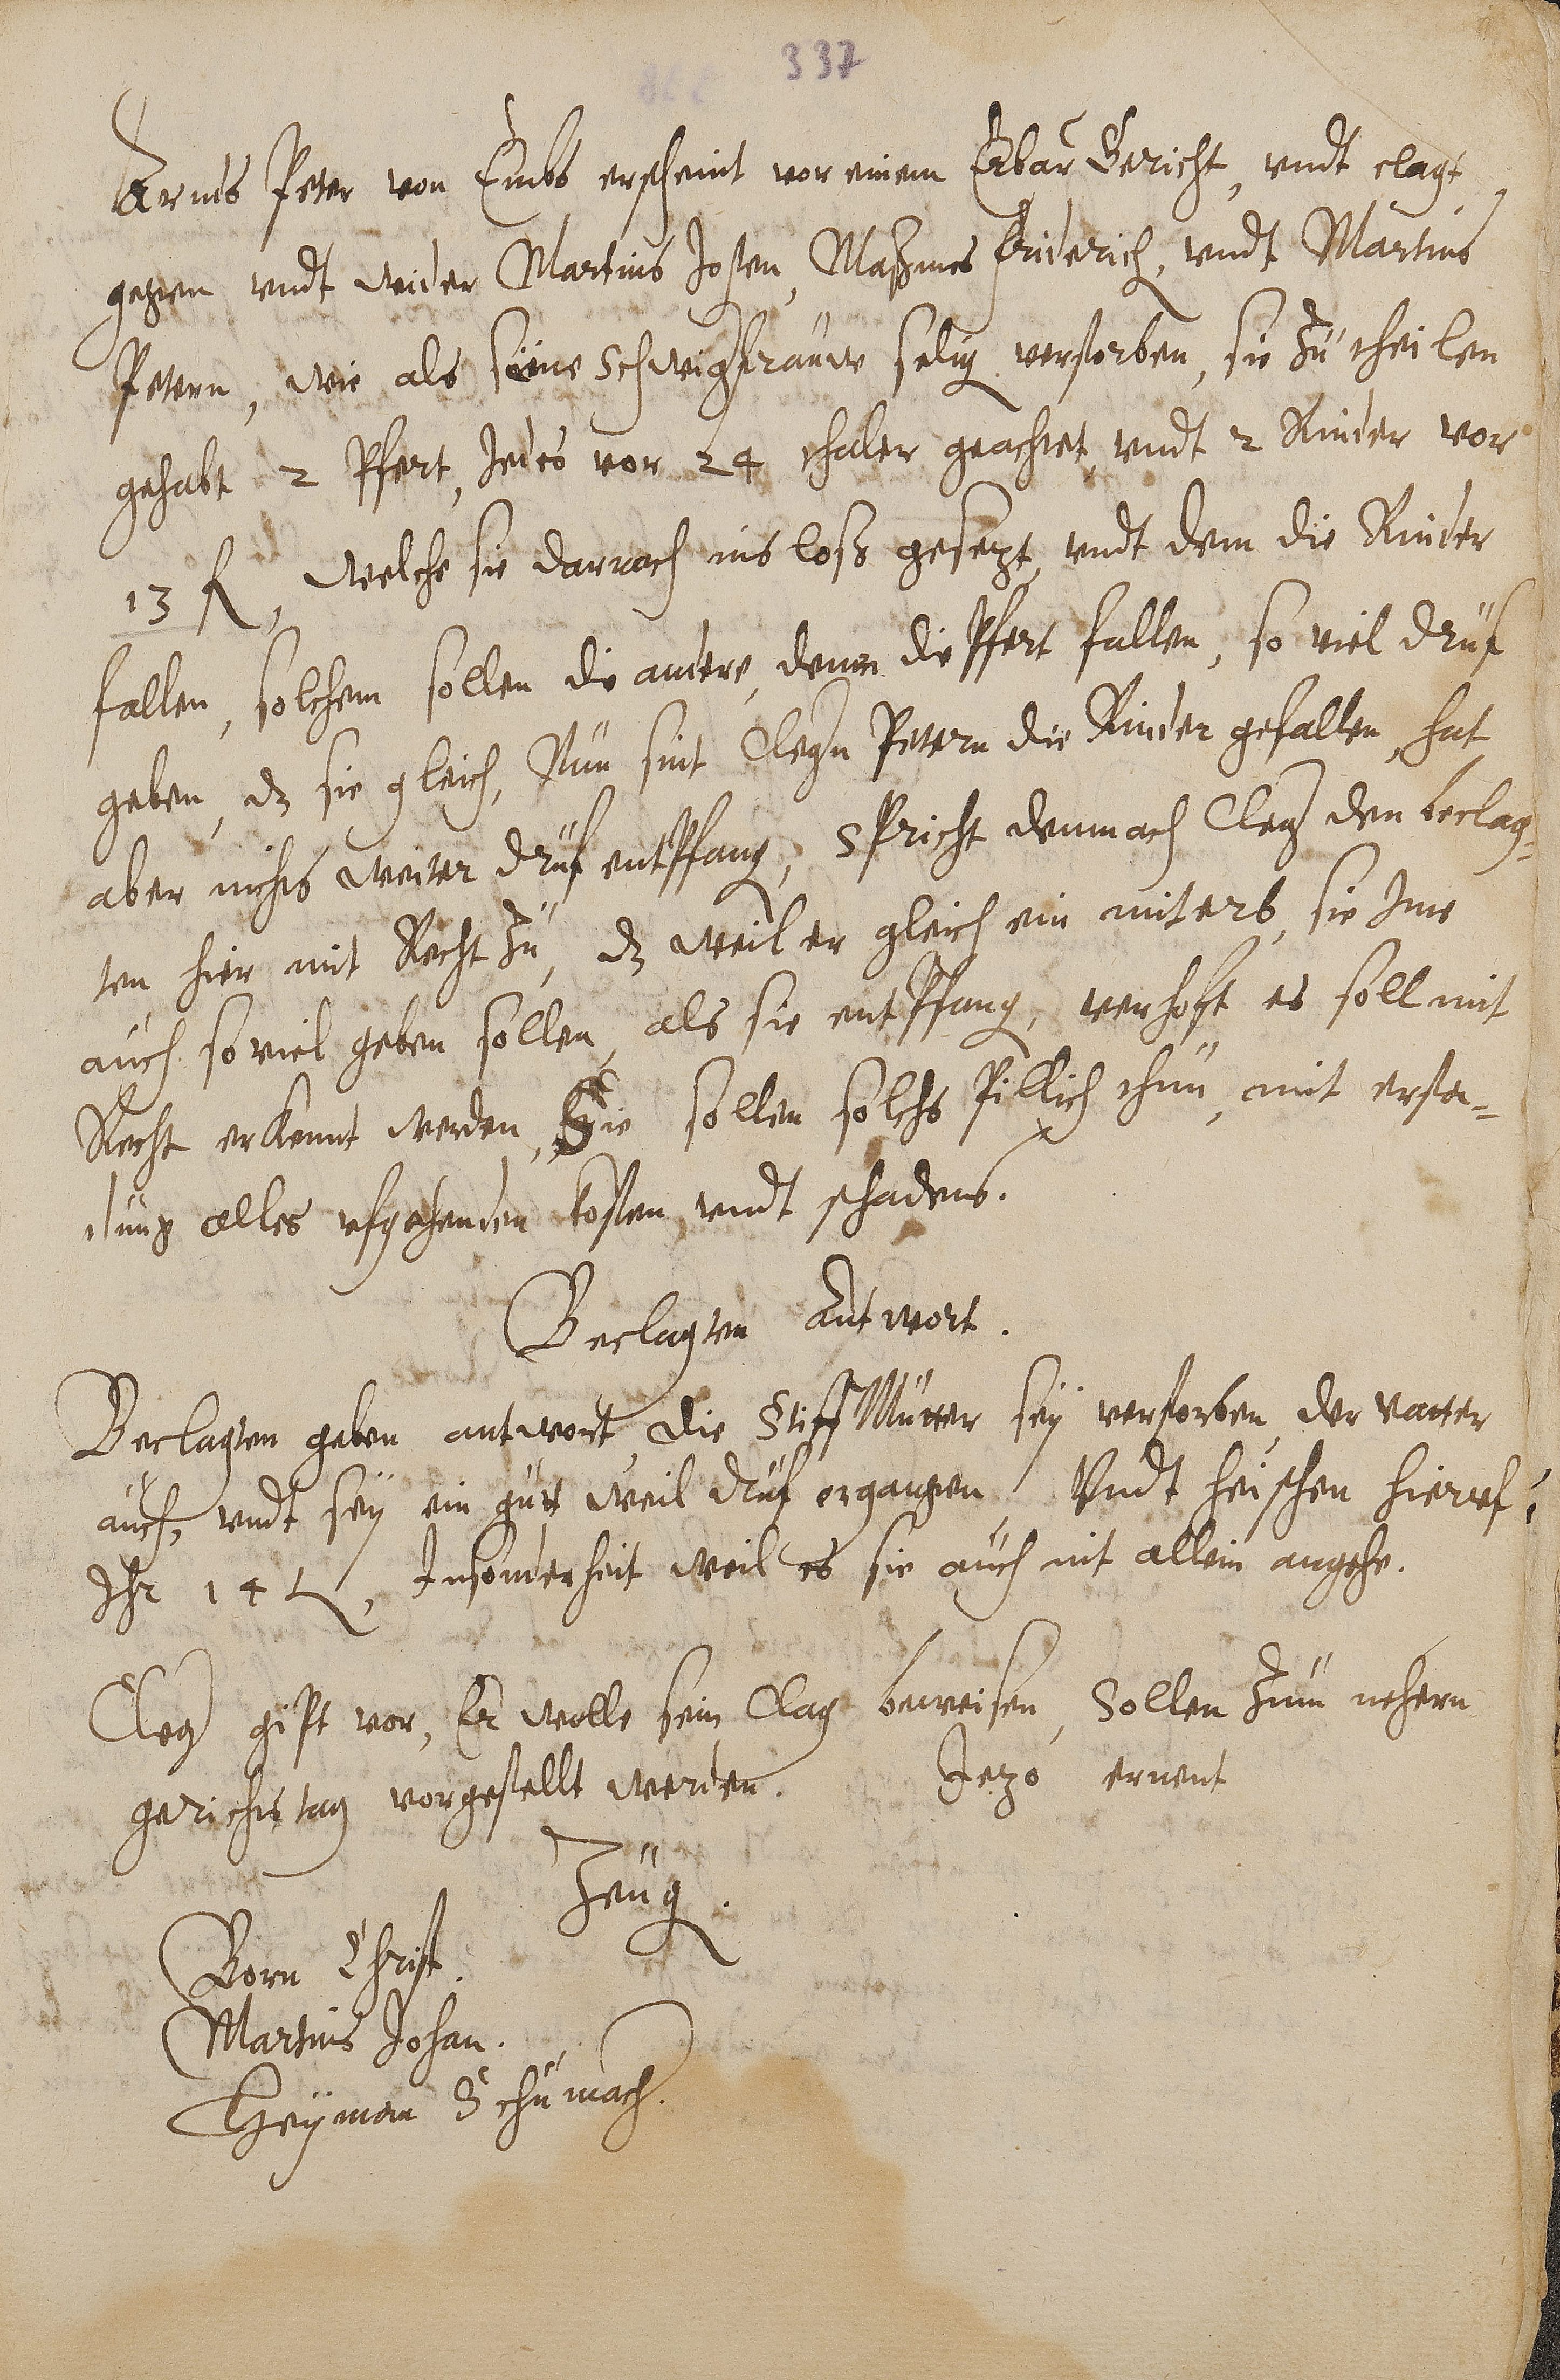 337
Arnds Peter von Embs erscheint vor einem Erbar Gericht, vndt clagt
gegen vndt wider Martins Josten, Friderich, vndt Martins
Petern, wie als seine Schwigfrauwe selig verstorben, sie zu theilen
gehabt 2 Pfert, Jedes vor 24 thaler geachtet, vndt 2 Rinder vor
13 fl, welche sie darnach ins loß gesetzt, vndt dem die Rinder
fallen, solchem sollen die andere, denen die Pfert fallen, so viel druf
geben, dz sie gleich, Nun sint Clegern Petern die Rinder gefallen, hat
aber nichts weiter druf entpfang, Spricht demnach Cleger den beclag-
ten hier mit Recht zu, dz weil er gleich ein miterb, sie Ime
auch so viel geben sollen, als sie entpfang, verhoft es soll mit
Recht erkennt werden, Sie sollen solchs pillich thun, mit ersta-
tung alles ufgehenden kosten, vndt schadens.
Beclagten Antwort.
Beclagten geben antwort, die StiffMutter sey verstorben, der vatter
auch, vndt sey ein gutt weil druf ergangen, Vndt heischen hieruf
Ihr 14 t, Insonderheit weil es sie auch nit allein angehe.
Cleger gipt vor, Er wolle sein Clag beweisen, Sollen zum nehern
gerichtstag vorgestellt werden. Jezo ernent
Zeug.
Born Christ.
Martins Johan.
Heyman Schumacher.